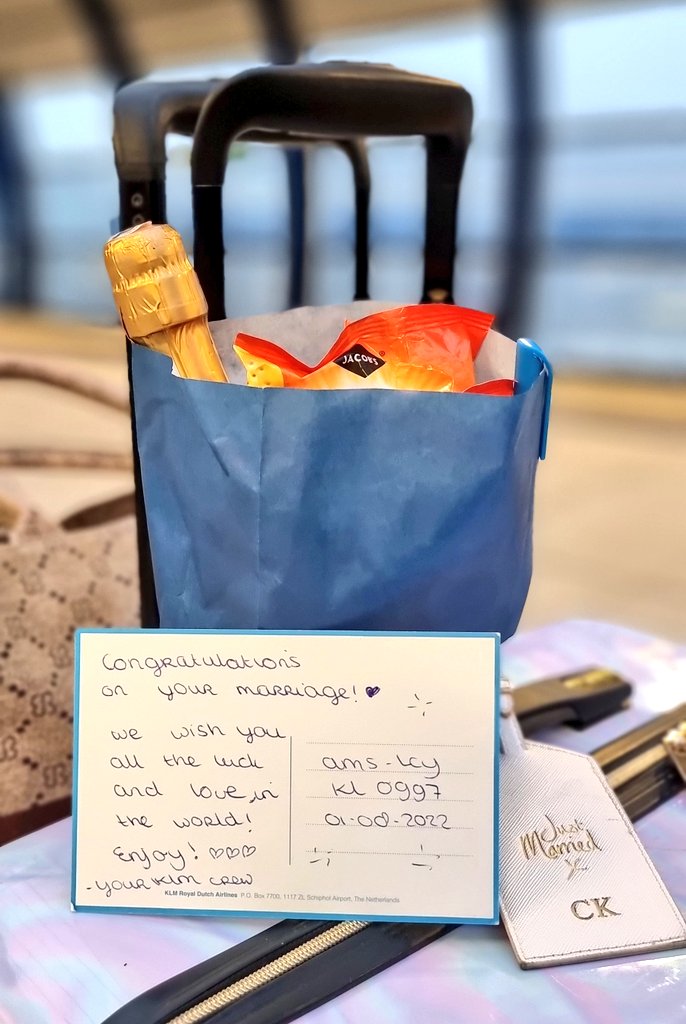 JACOB'S
Congratulations
on your marriage!
we wish you
all the luck
and love in
the world!
Enjoy! ♡♡♡
-your KLM crew
ams-lcy
KL 0997
01-08-2022
KLM Royal Dutch Airlines P.O. Box 7700, 1117 ZL Schiphol Airport, The Netherlands
Just
Married
CK